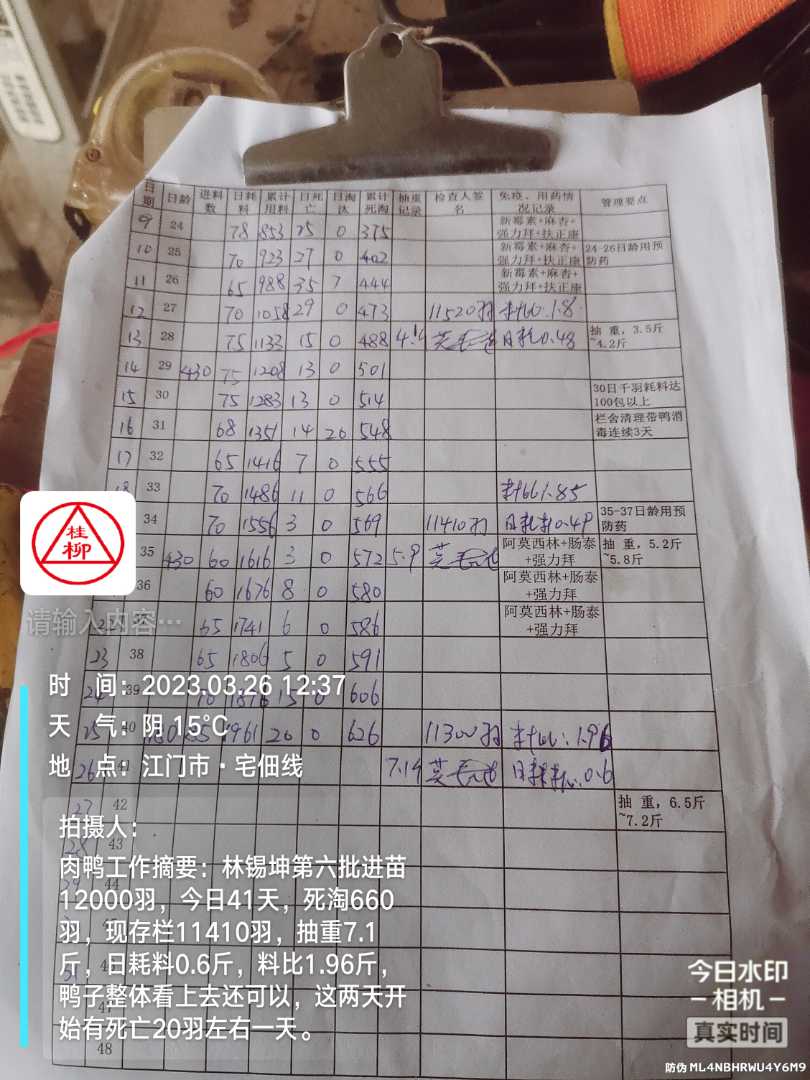 日期 日龄 进料数 日耗料 累计用料 日死亡 日淘汰 累计死淘 抽重记录 检查人签名 免疫、用药情况记录 管理要点
09 24 78 853 25 0 375 新霉素+麻杏+强力拜+扶正康
10 25 70 923 27 0 402 新霉素+麻杏+强力拜+扶正康 24-26日龄用预防药
11 26 65 988 35 7 444 新霉素+麻杏+强力拜+扶正康
12 27 70 1058 29 0 473 11520羽 料比:1.8
13 28 75 1133 15 0 488 4.1 日耗0.48 抽重,3.5斤~4.2斤
14 29 430 75 1208 13 0 501
15 30 75 1283 13 0 514 30日千羽耗料达100包以上
16 31 68 1351 14 20 548 栏舍清理带鸭消毒连续3天
17 32 65 1416 7 0 555
18 33 70 1486 11 0 566 料比1.85
34 70 1556 3 0 569 11410羽 日耗料0.49 35-37日龄用预防药
35 430 60 1616 3 0 572 5.9 阿莫西林+肠泰+强力拜 抽重,5.2斤~5.8斤
36 60 1676 8 0 580 阿莫西林+肠泰+强力拜
65 1741 6 0 586 阿莫西林+肠泰+强力拜
23 38 65 1806 5 0 591
24 39 70 1876 15 0 606
25 40 180 85 1961 20 0 626 11300羽 料比:1.96
26 41 7.14 日耗料:0.6
27 42 抽重,6.5斤~7.2斤
28 43
44
47
48
桂柳
请输入内容…
时 间:2023.03.26 12:37
天 气:阴 15℃
地 点:江门市·宅佃线
拍摄人:
肉鸭工作摘要:林锡坤第六批进苗
12000羽,今日41天,死淘660
羽,现存栏11410羽,抽重7.1
斤,日耗料0.6斤,料比1.96斤,
鸭子整体看上去还可以,这两天开
始有死亡20羽左右一天。
今日水印
-相机-
真实时间
防伪 ML4NBHRWU4Y6M9